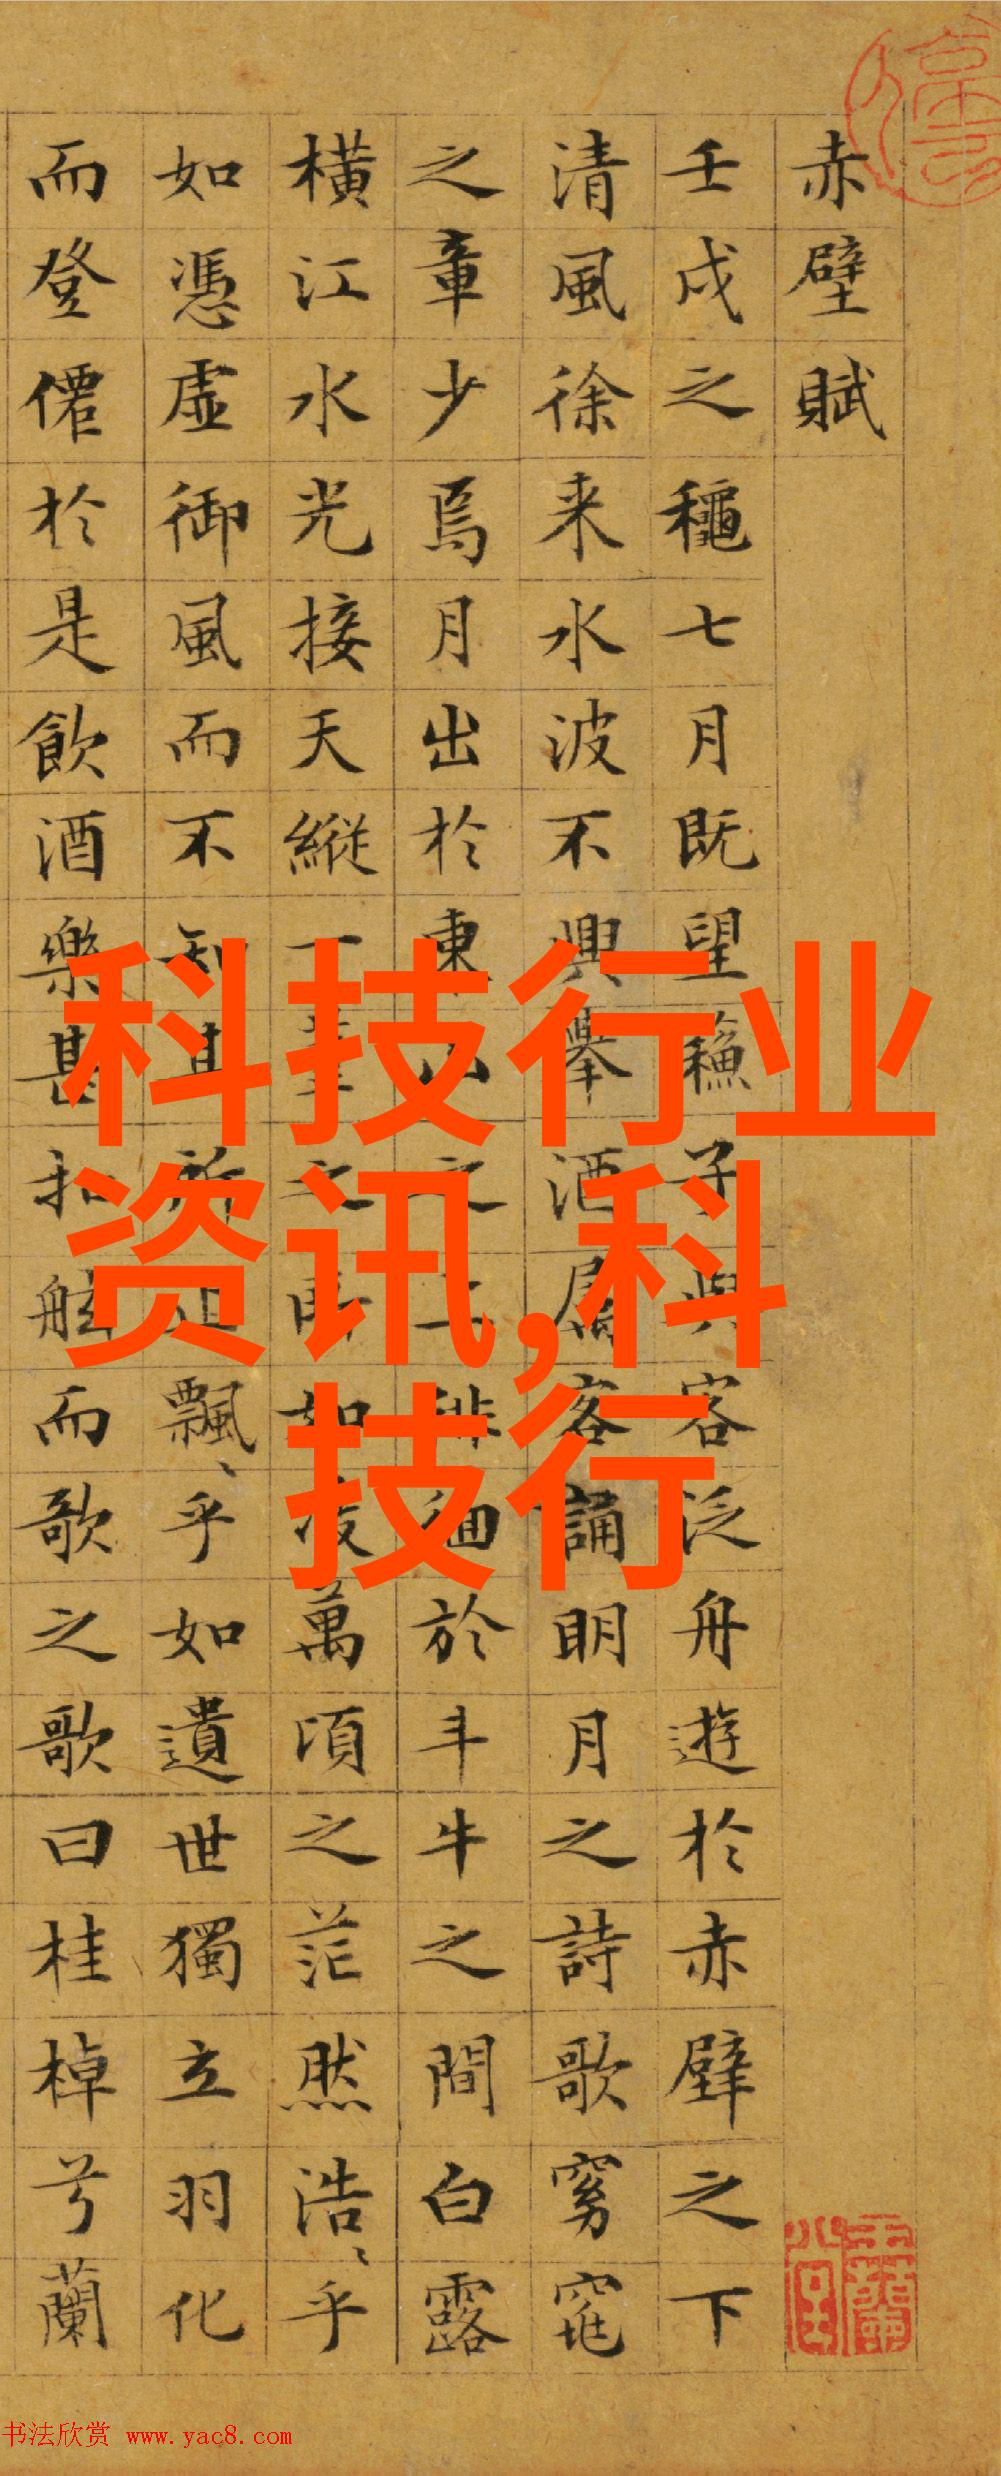 赤壁賦
壬戌之穐七月既望蘓子與客泛舟遊於赤壁之下
清風徐来水波不興舉酒屬客誦明月之詩歌窈窕
之章少焉月出於東山之上徘徊於斗牛之間白露
横江水光接天縱一葦之所如凌萬頃之茫然浩〻乎
如憑虚御風而不知其所止飄〻乎如遺世獨立羽化
而登僊於是飲酒樂甚扣舷而歌之歌曰桂棹兮蘭
科技行业
资讯,科
技行
书法欣赏 www.yac8.com